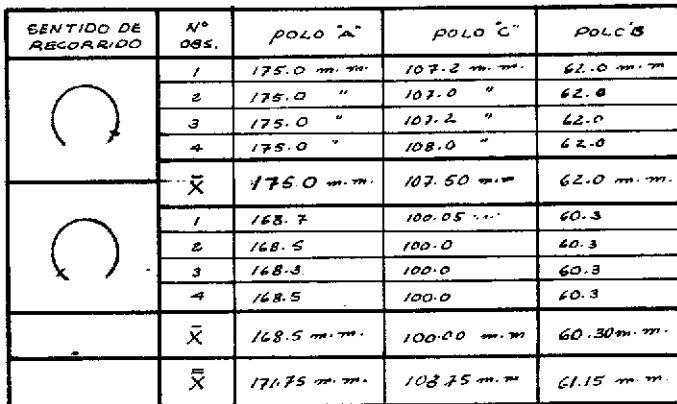 SENTIDO DE RECORRIDO | Nº OBS. | POLO "A" | POLO "C" | POLO "B
1 | 175.0 m.m. | 107.2 m.m. | 62.0 m.m
2 | 175.0 " | 107.0 " | 62.0
3 | 175.0 " | 107.2 " | 62.0
4 | 175.0 " | 108.0 " | 62.0
X̄ | 175.0 m.m. | 107.50 m.m | 62.0 m.m.
1 | 168.7 | 100.05 | 60.3
2 | 168.5 | 100.0 | 60.3
3 | 168.3 | 100.0 | 60.3
4 | 168.5 | 100.0 | 60.3
X̄ | 168.5 m.m. | 100.00 m.m | 60.30 m.m.
X̿ | 171.75 m.m. | 103.75 m.m | 61.15 m.m